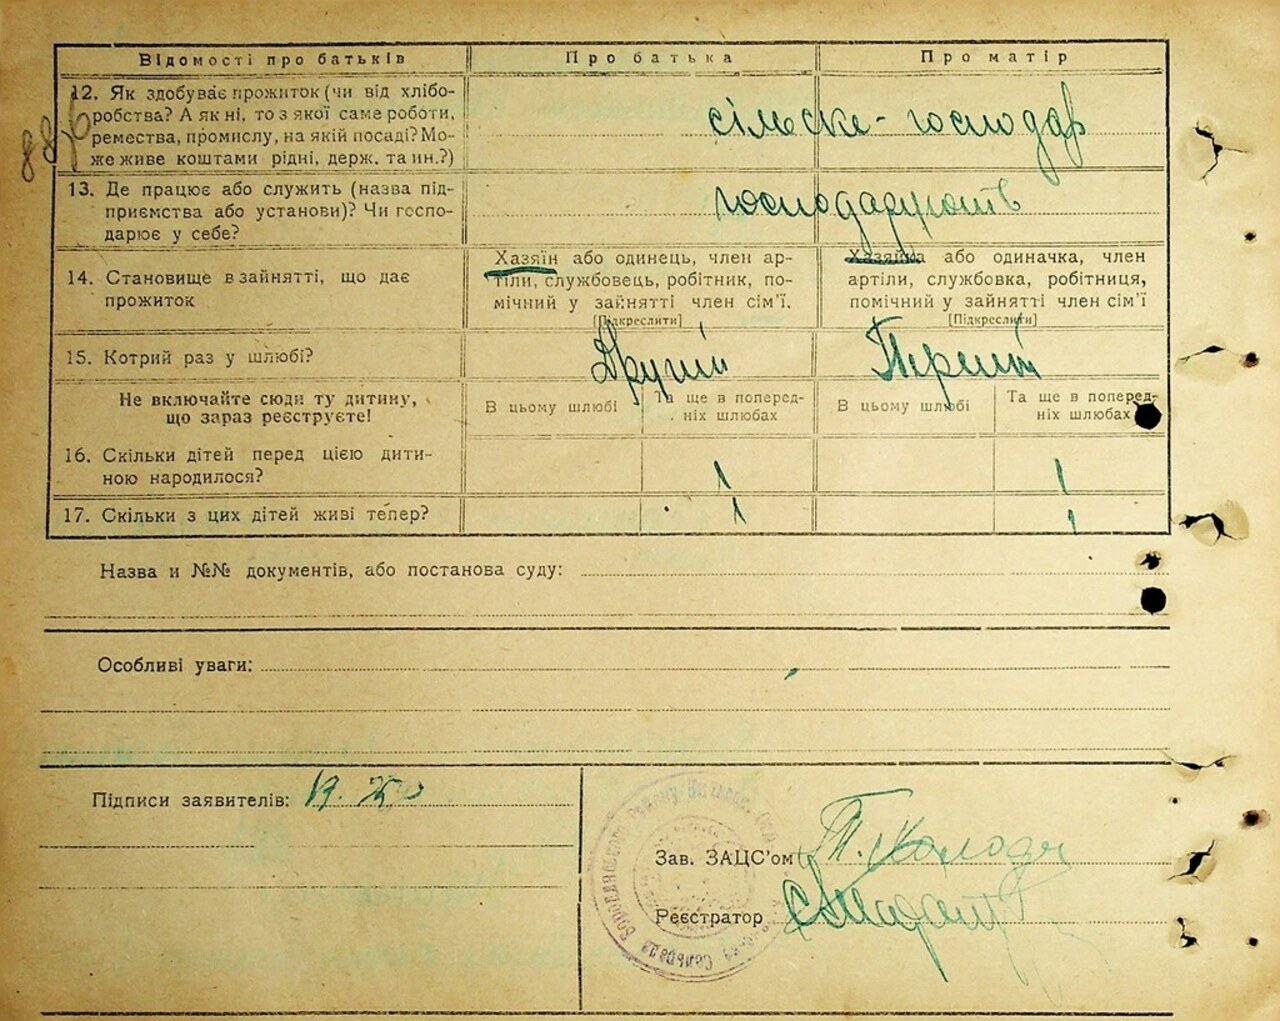 Відомості про батьків
Про батька
Про матір
12. Як здобуває прожиток (чи від хлібо-
робства? А як ні, то з якої саме роботи,
ремества, промислу, на якій посаді? Мо-
же живе коштами рідні, держ. та ин.?)
сільске-господар
13. Де працює або служить (назва під-
приємства або установи)? Чи госпо-
дарює у себе?
господарують
14. Становище в зайнятті, що дає
прожиток
Хазяїн або одинець, член ар-
тіли, службовець, робітник, по-
мічний у зайнятті член сім'ї.
[Підкреслити]
Хазяйка або одиначка, член
артіли, службовка, робітниця,
помічний у зайнятті член сім'ї
[Підкреслити]
15. Котрий раз у шлюбі?
Другий
Перший
Не включайте сюди ту дитину,
що зараз реєструєте!
В цьому шлюбі
Та ще в поперед-
ніх шлюбах
В цьому шлюбі
Та ще в поперед-
ніх шлюбах
16. Скільки дітей перед цією дити-
ною народилося?
1
1
17. Скільки з цих дітей живі тепер?
1
1
Назва и №№ документів, або постанова суду:
Особливі уваги:
Підписи заявителів:
Зав. ЗАЦС'ом
Реєстратор